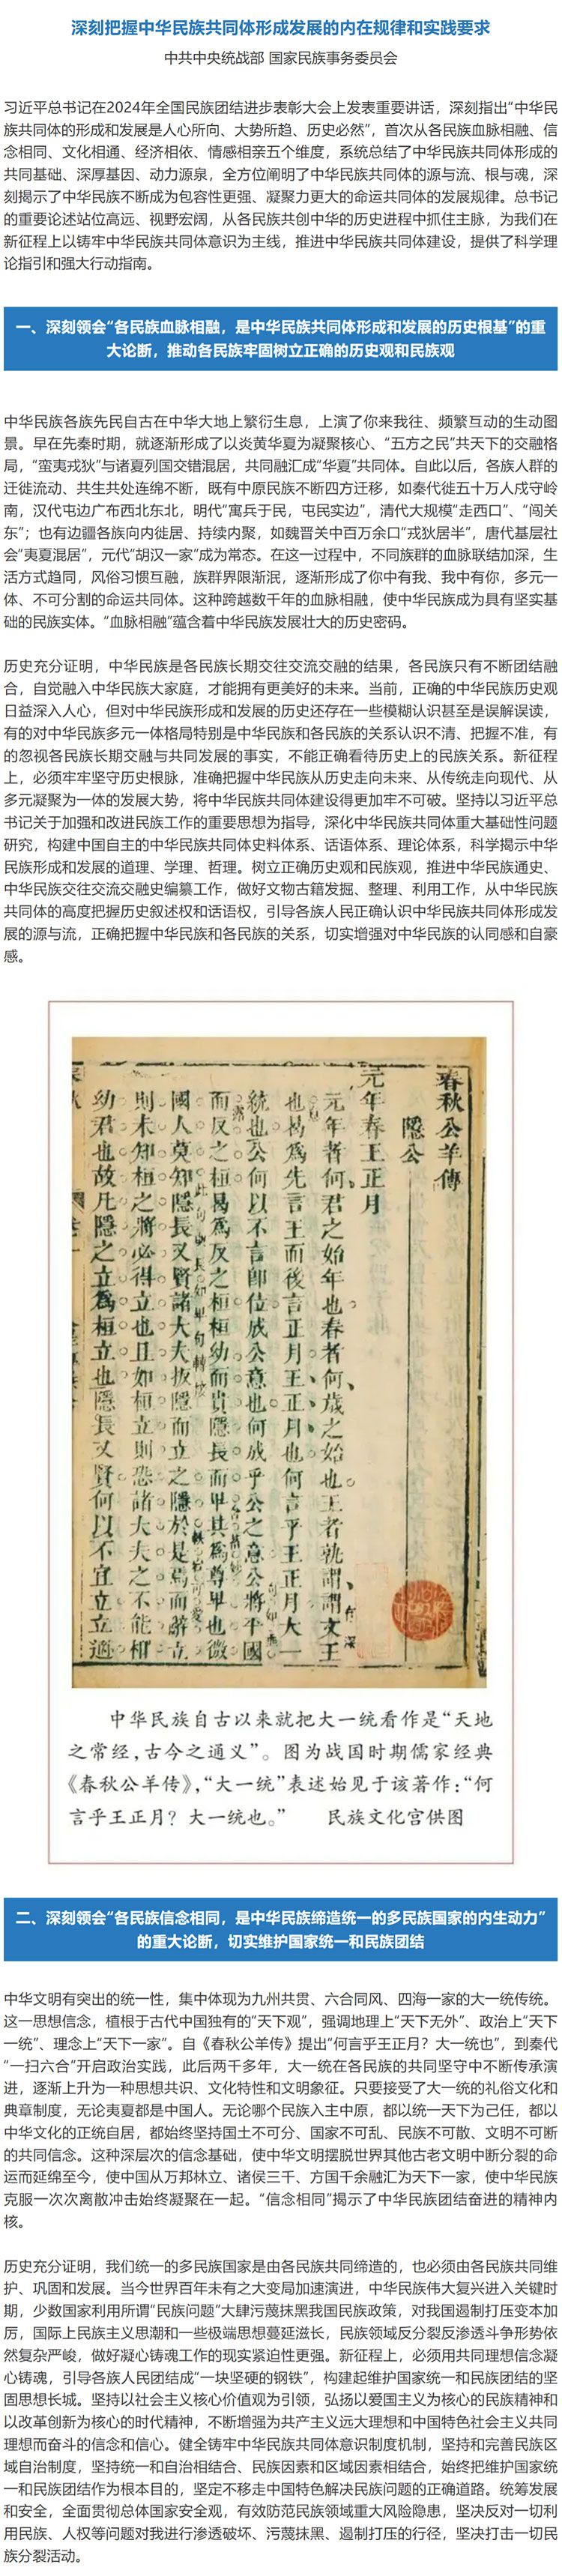 深刻把握中华民族共同体形成发展的内在规律和实践要求
中共中央统战部 国家民族事务委员会
习近平总书记在2024年全国民族团结进步表彰大会上发表重要讲话，深刻指出“中华民
族共同体的形成和发展是人心所向、大势所趋、历史必然”，首次从各民族血脉相融、信
念相同、文化相通、经济相依、情感相亲五个维度，系统总结了中华民族共同体形成的
共同基础、深厚基因、动力源泉，全方位阐明了中华民族共同体的源与流、根与魂，深
刻揭示了中华民族不断成为包容性更强、凝聚力更大的命运共同体的发展规律。总书记
的重要论述站位高远、视野宏阔，从各民族共创中华的历史进程中抓住主脉，为我们在
新征程上以铸牢中华民族共同体意识为主线，推进中华民族共同体建设，提供了科学理
论指引和强大行动指南。
一、深刻领会“各民族血脉相融，是中华民族共同体形成和发展的历史根基”的重
大论断，推动各民族牢固树立正确的历史观和民族观
中华民族各族先民自古在中华大地上繁衍生息，上演了你来我往、频繁互动的生动图
景。早在先秦时期，就逐渐形成了以炎黄华夏为凝聚核心、“五方之民”共天下的交融格
局，“蛮夷戎狄”与诸夏列国交错混居，共同融汇成“华夏”共同体。自此以后，各族人群的
迁徙流动、共生共处连绵不断，既有中原民族不断四方迁移，如秦代徙五十万人戍守岭
南，汉代屯边广布西北东北，明代“寓兵于民，屯民实边”，清代大规模“走西口”、“闯关
东”；也有边疆各族向内徙居、持续内聚，如魏晋关中百万余口“戎狄居半”，唐代基层社
会“夷夏混居”，元代“胡汉一家”成为常态。在这一过程中，不同族群的血脉联结加深，生
活方式趋同，风俗习惯互融，族群界限渐泯，逐渐形成了你中有我、我中有你，多元一
体、不可分割的命运共同体。这种跨越数千年的血脉相融，使中华民族成为具有坚实基
础的民族实体。“血脉相融”蕴含着中华民族发展壮大的历史密码。
历史充分证明，中华民族是各民族长期交往交流交融的结果，各民族只有不断团结融
合，自觉融入中华民族大家庭，才能拥有更美好的未来。当前，正确的中华民族历史观
日益深入人心，但对中华民族形成和发展的历史还存在一些模糊认识甚至是误解误读，
有的对中华民族多元一体格局特别是中华民族和各民族的关系认识不清、把握不准，有
的忽视各民族长期交融与共同发展的事实，不能正确看待历史上的民族关系。新征程
上，必须牢牢坚守历史根脉，准确把握中华民族从历史走向未来、从传统走向现代、从
多元凝聚为一体的发展大势，将中华民族共同体建设得更加牢不可破。坚持以习近平总
书记关于加强和改进民族工作的重要思想为指导，深化中华民族共同体重大基础性问题
研究，构建中国自主的中华民族共同体史料体系、话语体系、理论体系，科学揭示中华
民族形成和发展的道理、学理、哲理。树立正确历史观和民族观，推进中华民族通史、
中华民族交往交流交融史编纂工作，做好文物古籍发掘、整理、利用工作，从中华民族
共同体的高度把握历史叙述权和话语权，引导各族人民正确认识中华民族共同体形成发
展的源与流，正确把握中华民族和各民族的关系，切实增强对中华民族的认同感和自豪
感。
春秋公羊傳
隱公
元年春王正月
元年者何君之始年也春者何歲之始也王者孰謂謂文王
也曷爲先言王而後言正月王正月也何言乎王正月大一
統也公何以不言卽位成公意也何成乎公之意公將平國
而反之桓曷爲反之桓桓幼而貴隱長而卑其爲尊卑也微
國人莫知隱長又賢諸大夫扳隱而立之隱於是焉而辭立
則未知桓之將必得立也且如桓立則恐諸大夫之不能相
幼君也故凡隱之立爲桓立也隱長又賢何以不宜立立適
中华民族自古以来就把大一统看作是“天地
之常经，古今之通义”。图为战国时期儒家经典
《春秋公羊传》，“大一统”表述始见于该著作：“何
言乎王正月？大一统也。” 民族文化宫供图
二、深刻领会“各民族信念相同，是中华民族缔造统一的多民族国家的内生动力”
的重大论断，切实维护国家统一和民族团结
中华文明有突出的统一性，集中体现为九州共贯、六合同风、四海一家的大一统传统。
这一思想信念，植根于古代中国独有的“天下观”，强调地理上“天下无外”、政治上“天下
一统”、理念上“天下一家”。自《春秋公羊传》提出“何言乎王正月？大一统也”，到秦代
“一扫六合”开启政治实践，此后两千多年，大一统在各民族的共同坚守中不断传承演
进，逐渐上升为一种思想共识、文化特性和文明象征。只要接受了大一统的礼俗文化和
典章制度，无论夷夏都是中国人。无论哪个民族入主中原，都以统一天下为己任，都以
中华文化的正统自居，都始终坚持国土不可分、国家不可乱、民族不可散、文明不可断
的共同信念。这种深层次的信念基础，使中华文明摆脱世界其他古老文明中断分裂的命
运而延绵至今，使中国从万邦林立、诸侯三千、方国千余融汇为天下一家，使中华民族
克服一次次离散冲击始终凝聚在一起。“信念相同”揭示了中华民族团结奋进的精神内
核。
历史充分证明，我们统一的多民族国家是由各民族共同缔造的，也必须由各民族共同维
护、巩固和发展。当今世界百年未有之大变局加速演进，中华民族伟大复兴进入关键时
期，少数国家利用所谓“民族问题”大肆污蔑抹黑我国民族政策，对我国遏制打压变本加
厉，国际上民族主义思潮和一些极端思想蔓延滋长，民族领域反分裂反渗透斗争形势依
然复杂严峻，做好凝心铸魂工作的现实紧迫性更强。新征程上，必须用共同理想信念凝
心铸魂，引导各族人民团结成“一块坚硬的钢铁”，构建起维护国家统一和民族团结的坚
固思想长城。坚持以社会主义核心价值观为引领，弘扬以爱国主义为核心的民族精神和
以改革创新为核心的时代精神，不断增强为共产主义远大理想和中国特色社会主义共同
理想而奋斗的信念和信心。健全铸牢中华民族共同体意识制度机制，坚持和完善民族区
域自治制度，坚持统一和自治相结合、民族因素和区域因素相结合，始终把维护国家统
一和民族团结作为根本目的，坚定不移走中国特色解决民族问题的正确道路。统筹发展
和安全，全面贯彻总体国家安全观，有效防范民族领域重大风险隐患，坚决反对一切利
用民族、人权等问题对我进行渗透破坏、污蔑抹黑、遏制打压的行径，坚决打击一切民
族分裂活动。